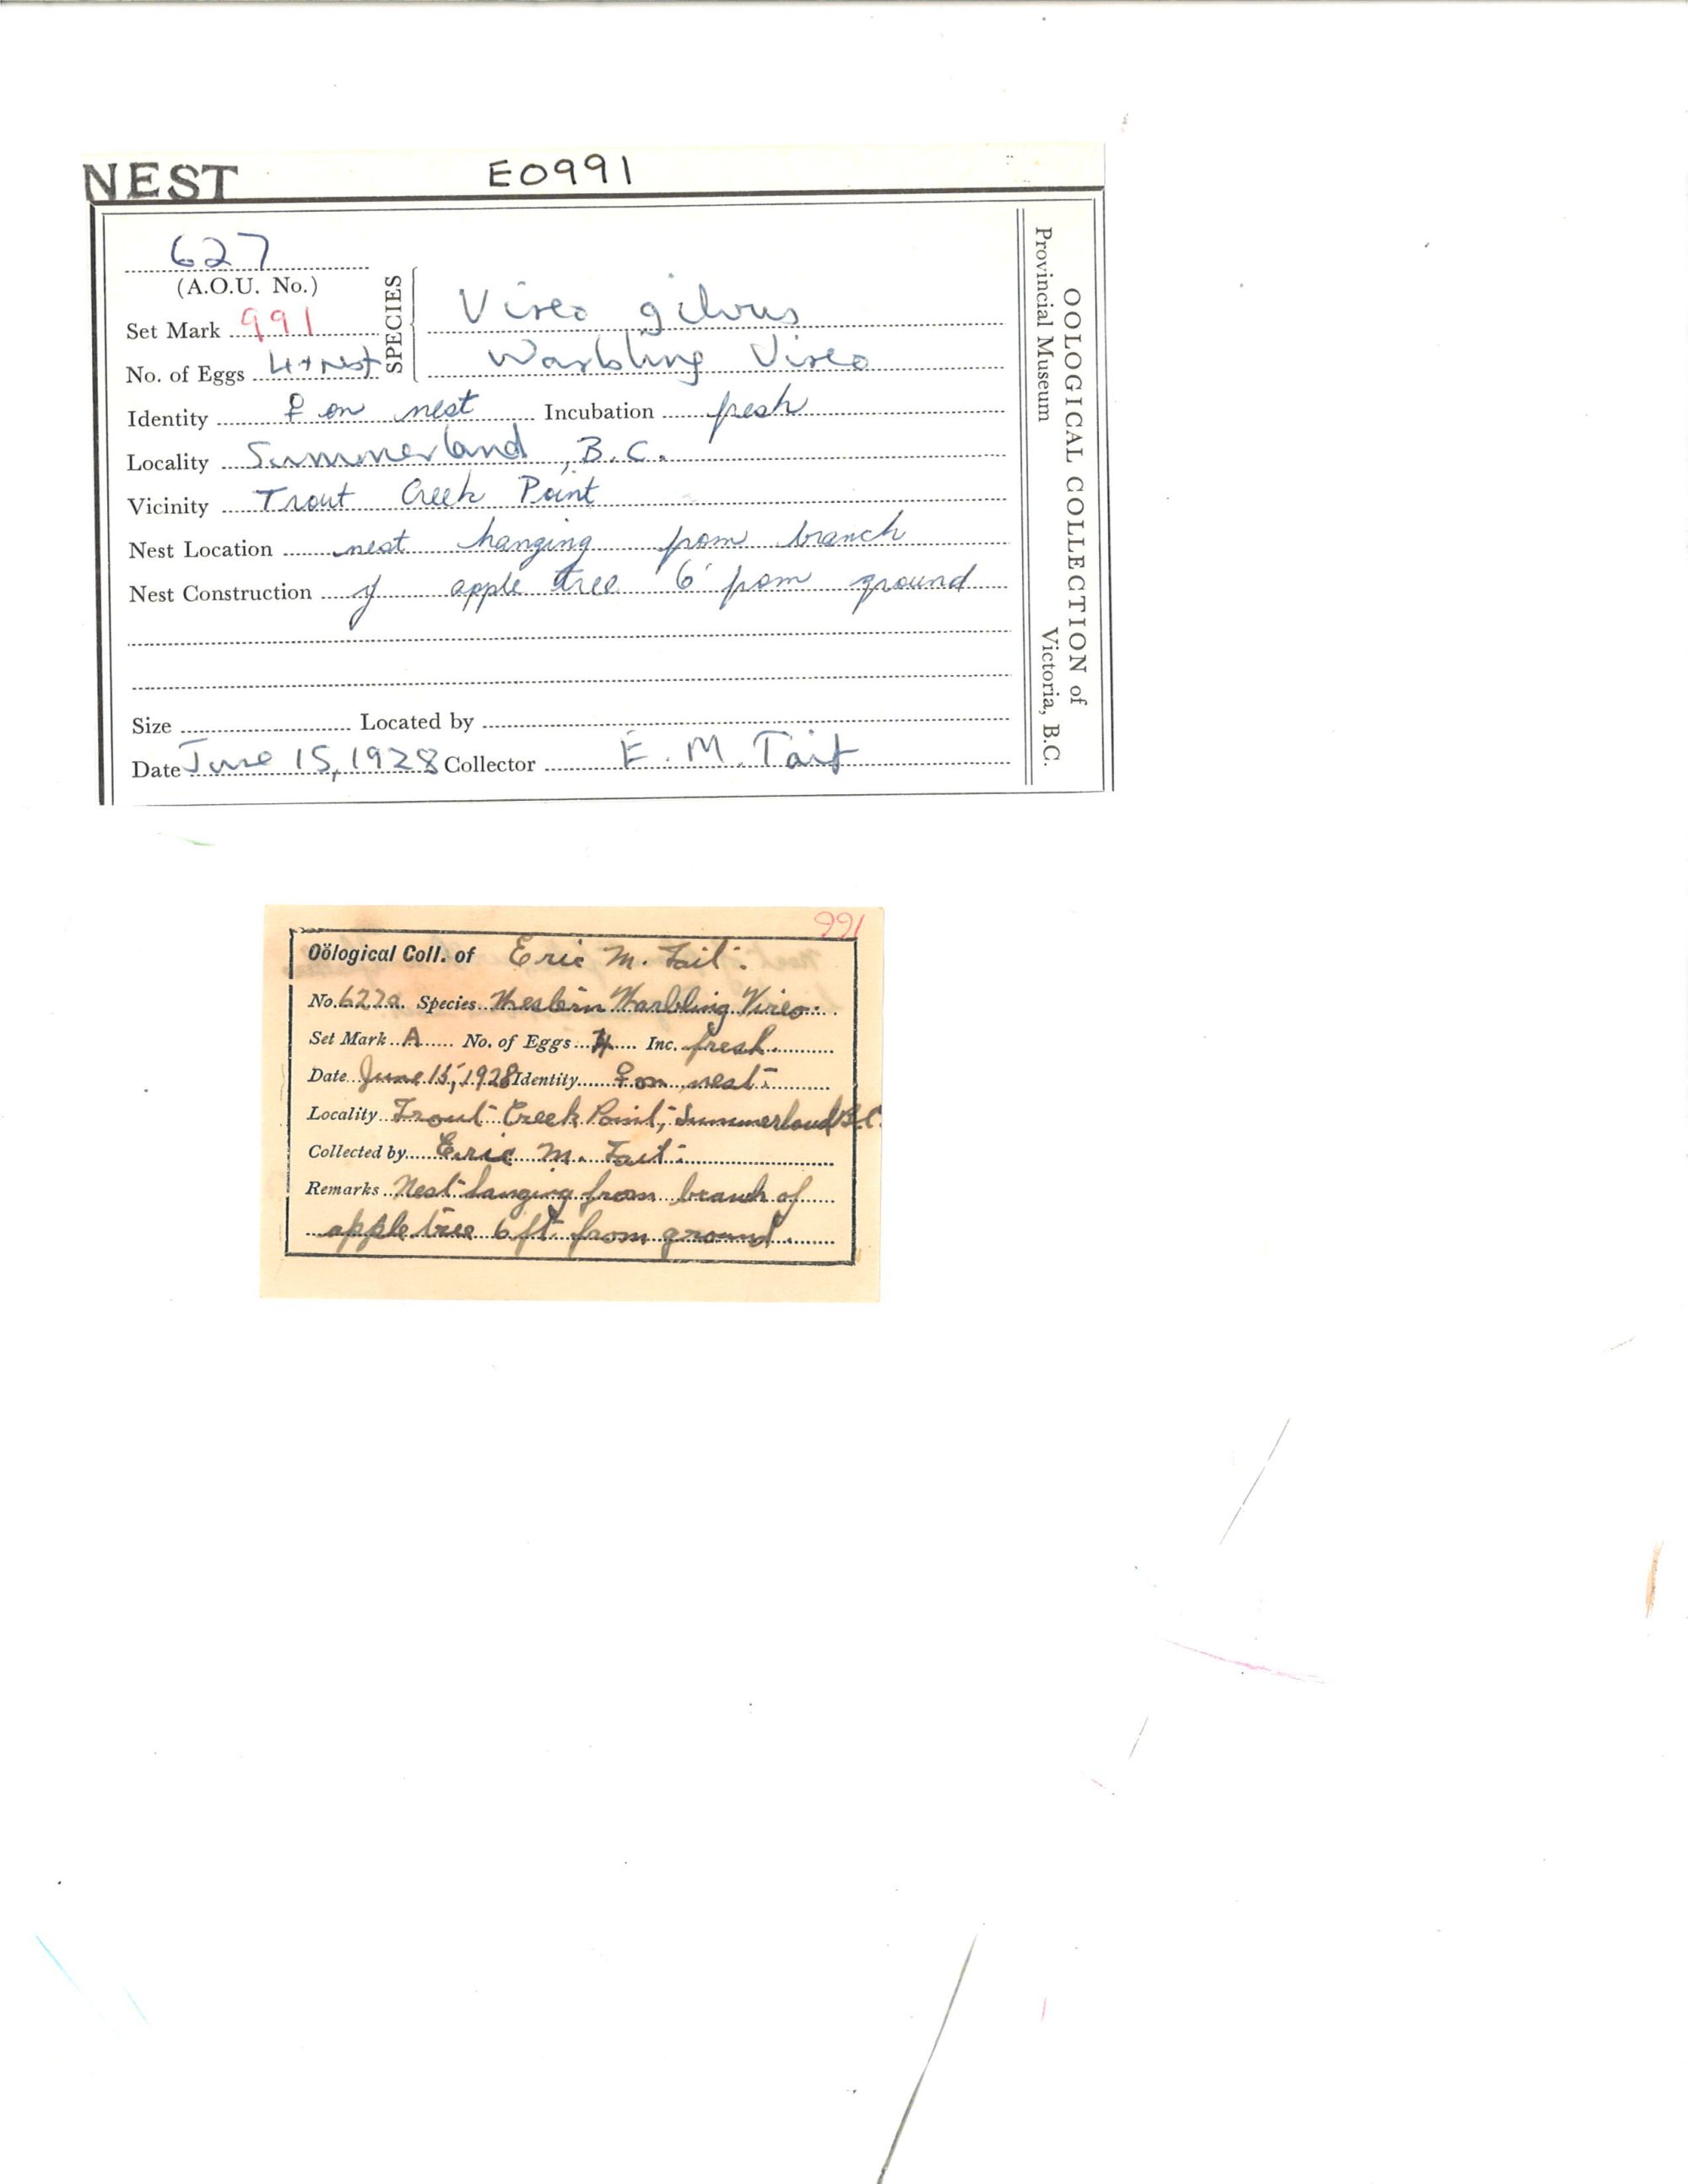 NEST E0991
627
(A.O.U. No.)
Set Mark 991
No. of Eggs 4 + Nest
SPECIES
Vireo gilvus
Warbling Vireo
Identity ♀ on nest Incubation fresh
Locality Summerland, B.C.
Vicinity Trout Creek Point
Nest Location nest hanging from branch
Nest Construction of apple tree 6' from ground
Size Located by
Date June 15, 1928 Collector E. M. Tait
OOLOGICAL COLLECTION of
Provincial Museum Victoria, B.C.
991
Oölogical Coll. of Eric M. Tait.
No. 627a. Species Western Warbling Vireo.
Set Mark A No. of Eggs 4 Inc. fresh.
Date June 15, 1928 Identity ♀ on nest.
Locality Trout Creek Point, Summerland B.C.
Collected by Eric M. Tait.
Remarks Nest hanging from branch of
apple tree 6 ft. from ground.